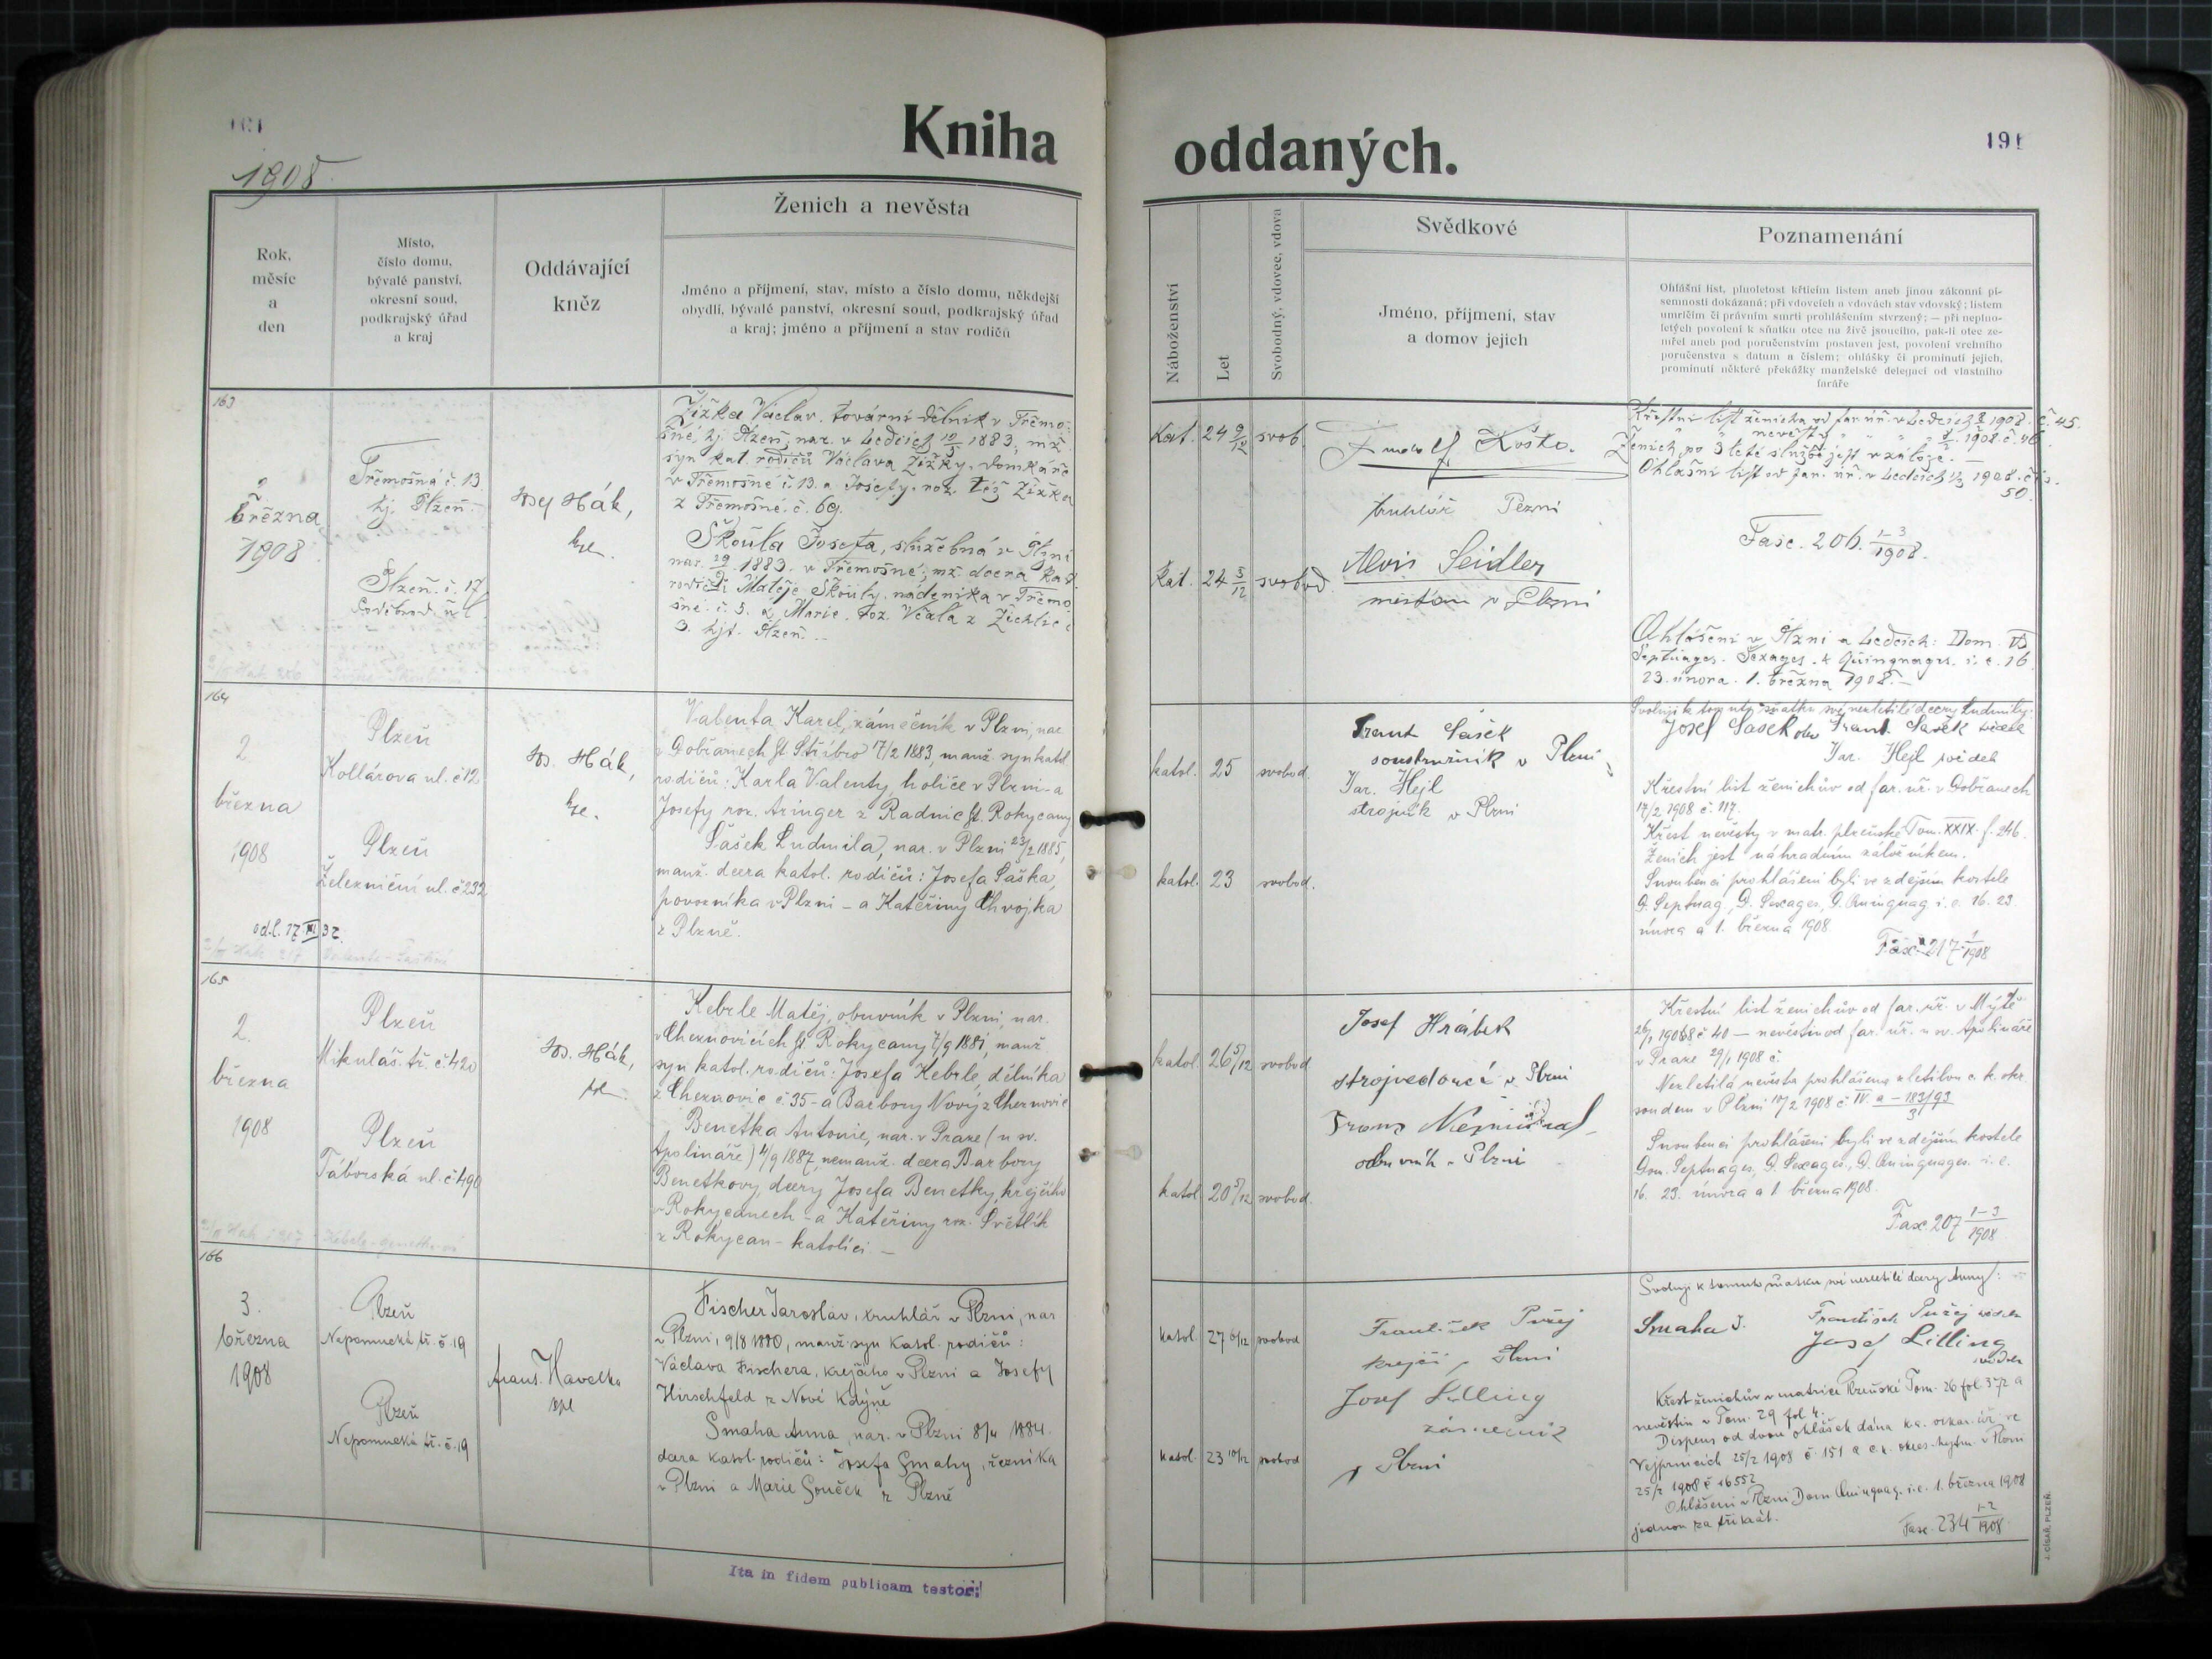 Kniha
oddaných.
191
1908.
Rok,
měsíc
a
den
Místo,
číslo domu,
bývalé panství,
okresní soud,
podkrajský úřad
a kraj
Oddávající
kněz
Ženich a nevěsta
Jméno a příjmení, stav, místo a číslo domu, někdejší
obydlí, bývalé panství, okresní soud, podkrajský úřad
a kraj; jméno a příjmení a stav rodičů
Náboženství
Let
Svobodný, vdovec, vdova
Svědkové
Jméno, příjmení, stav
a domov jejich
Poznamenání
Ohlášní list, plnoletost křticím listem aneb jinou zákonní pí-
semností dokázaná; při vdovcích a vdovách stav vdovský; listem
umrlčím či právním smrti prohlášením stvrzený; — při neplno-
letých povolení k sňatku otce na živě jsoucího, pak-li otec ze-
mřel aneb pod poručenstvím postaven jest, povolení vrchního
poručenstva s datum a číslem; ohlášky či prominutí jejich,
prominutí některé překážky manželské delegací od vlastního
faráře
163
2
března
1908
Třemošná č. 13
hj. Plzeň
Plzeň č. 17
Poděbrad. ul.
Hák,
Žižka Václav, tovární dělník v Třemo-
šné, hj. Plzeň, nar. v Ledcích 1883, mž.
syn kat. rodičů Václava Žižky, domkáře
v Třemošné č. 13. a Josefy, roz. též Žižka
z Třemošné č. 69.
Škoula Josefa, služebná v Plzni
nar. 1883. v Třemošné; mž. dcera kat.
rodičů Matěje Škouly, nádeníka v Třemo-
šné č. 5. a Marie, roz. Včala z Žichlic č.
3. hjt. Plzeň.
Kat. 24 9/12 svob.
Kat. 24 5/12 svobod.
Košta.
truhlář Plzni
Alois Seidler
měšťan v Plzni
Křestní list ženicha od far. úř. v Ledcích 1908. č. 45.
" " nevěsty " " " 1908. č. 46.
Ženich po 3 leté službě jest v záloze. —
Ohlášní list od far. úř. v Ledcích 1908. čís.
50.
Fasc. 206. 1-3/1908.
Ohlášeni v Plzni a Ledcích: Dom.
Septuages. Sexages. & Quinquages. i. e. 16.
23. února. 1. března 1908. —
164
2
března
1908
Plzeň
Kollárova ul. č 12
Plzeň
Železniční ul. č 232
odl. 17 32.
Hák,
Valenta Karel, zámečník v Plzni, nar.
v Dobřanech ht. Stříbro 17/2 1883, manž. syn katol.
rodičů: Karla Valenty, holiče v Plzni - a
Josefy roz. Aringer z Radnic ht. Rokycany
Šašek Ludmila, nar. v Plzni 23/2 1885,
manž. dcera katol. rodičů: Josefa Šaška,
povozníka v Plzni - a Kateřiny Chvojka
z Plzně.
katol. 25 svobod.
katol. 23 svobod.
Frant Šašek
soustružník v Plzni
Jar. Hejl
strojník v Plzni
Svoluji k tomuto sňatku své nezletilé dcery Ludmily:
Josef Sasek otec Frant Šašek svědek
Jar. Hejl svědek
Křestní list ženichův od far. úř. v Dobřanech
17/2 1908 č. 117.
Křest nevěsty v matr. plzeňské Tom. XXIX. f. 246.
Ženich jest náhradním záložníkem.
Snoubenci prohlášeni byli ve zdejším kostele
D. Septuag., D. Sexages, D. Quinquag. i. e. 16. 23.
února a 1. března 1908
Fasc. 217 1908
165
2.
března
1908
Plzeň
Mikuláš. tř. č. 420
Plzeň
Táborská ul. č 490
Hák,
Keberle Matěj, obuvník v Plzni, nar.
v Cheznovicích ht Rokycany 7/9 1881, manž.
syn katol. rodičů: Josefa Keberle, dělníka
z Cheznovic č. 35 - a Barbory Nový z Cheznovic
Benetka Antonie, nar. v Praze (u sv.
Apolináře) 4/9 1887, nemanž. dcera Barbory
Benetkovy, dcery Josefa Benetky, krejčího
v Rokycanech - a Kateřiny roz. Světlík
z Rokycan - katolíci. —
katol. 26 5/12 svobod
katol. 20 5/12 svobod.
Josef Hrábek
strojvedoucí v Plzni
obuvník v Plzni
Křestní list ženichův od far. úř. v Mýtě
26/1 1908 č 40 — nevěstin od far. úř. u sv. Apolináře
v Praze 29/1 1908 č.
Nezletilá nevěsta prohlášena zletilou c. k. okr.
soudem v Plzni 10/2 1908 č IV. a - 183/93
3
Snoubenci prohlášeni byli ve zdejším kostele
Dom. Septuages, D. Sexages, D. Quinquages. i. e.
16. 23. února a 1. března 1908.
Fasc. 207 1-3/1908
166
3.
března
1908
Plzeň
Nepomucká tř. č. 19
Plzeň
Nepomucká tř. č. 19
Frant. Havelka
Fischer Jaroslav, truhlář v Plzni, nar
v Plzni, 9/8 1880, manž. syn katol. rodičů:
Václava Fischera, krejčího v Plzni a Josefy
Hirschfeld z Nové Kdýně
Smaha Anna, nar. v Plzni 8/4 1884.
dcera katol. rodičů: Josefa Smahy, řezníka
v Plzni a Marie Souček z Plzně
katol. 27 6/12 svobod
katol. 23 10/12 svobod
František Pužej
krejčí, Plzni
Josef Lilling
zámečník
v Plzni
Svoluji k tomuto sňatku své nezletilé dcery Anny:
Smaha J. František Pužej svědek
Josef Lilling
svědek
Křest ženichův v matrice Plzeňské Tom. 26 fol 372 a
nevěstin v Tom. 29 fol 4.
Dispens od dvou ohlášek dána k. a. vikar. úř. ve
Vejprnicích 25/2 1908 č. 151 a c. k. okres. hejtm. v Plzni
25/2 1908 č 16552
Ohlášeni v Plzni Dom Quinquag. i. e. 1. března 1908
jednou za třikrát.
Fasc. 234 1-2/1908
Ita in fidem publicam testor:
J. CÍSAŘ, PLZEŇ.